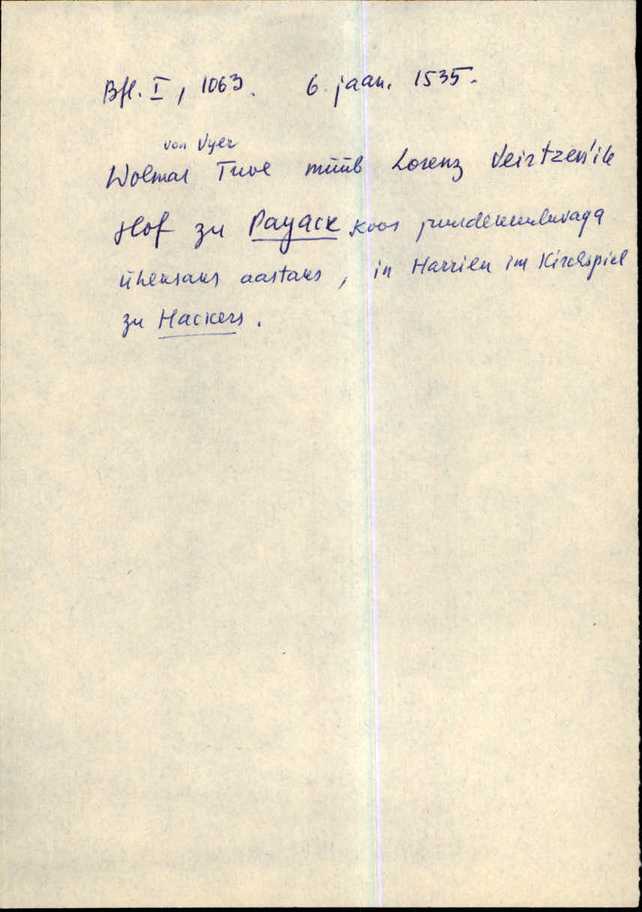 Bfl. I, 1063. 6. jaan. 1535.
von Vyer
Wolmar Tuve müüb Lorenz Veirtzen'ile
Hof zu Payack koos
ühensaks aastaks, in Harrien im Kirchspiel
zu Hackers.